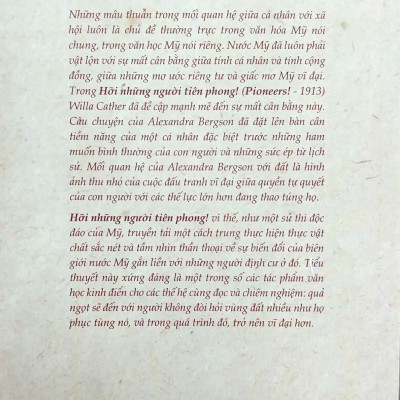 Những mâu thuẫn trong mối quan hệ giữa cá nhân với xã
hội luôn là chủ đề thường trực trong văn hóa Mỹ nói
chung, trong văn học Mỹ nói riêng. Nước Mỹ đã luôn phải
vật lộn với sự mất cân bằng giữa tính cá nhân và tính cộng
đồng, giữa những mơ ước riêng tư và giấc mơ Mỹ vĩ đại.
Trong Hỡi những người tiên phong! (Pioneers! - 1913)
Willa Cather đã đề cập mạnh mẽ đến sự mất cân bằng này.
Câu chuyện của Alexandra Bergson đã đặt lên bàn cân
tiềm năng của một cá nhân đặc biệt trước những ham
muốn bình thường của con người và những sức ép từ lịch
sử. Mối quan hệ của Alexandra Bergson với đất là hình
ảnh thu nhỏ của cuộc đấu tranh vĩ đại giữa quyền tự quyết
của con người với các thế lực lớn hơn đang thao túng họ.
Hỡi những người tiên phong! vì thế, như một sử thi độc
đáo của Mỹ, truyền tải một cách trung thực hiện thực vật
chất sắc nét và tầm nhìn thần thoại về sự biến đổi của biên
giới nước Mỹ gắn liền với những người định cư ở đó. Tiểu
thuyết này xứng đáng là một trong số các tác phẩm văn
học kinh điển cho các thế hệ cùng đọc và chiêm nghiệm: quả
ngọt sẽ đến với người không đòi hỏi vùng đất nhiều như họ
phục tùng nó, và trong quá trình đó, trở nên vĩ đại hơn.